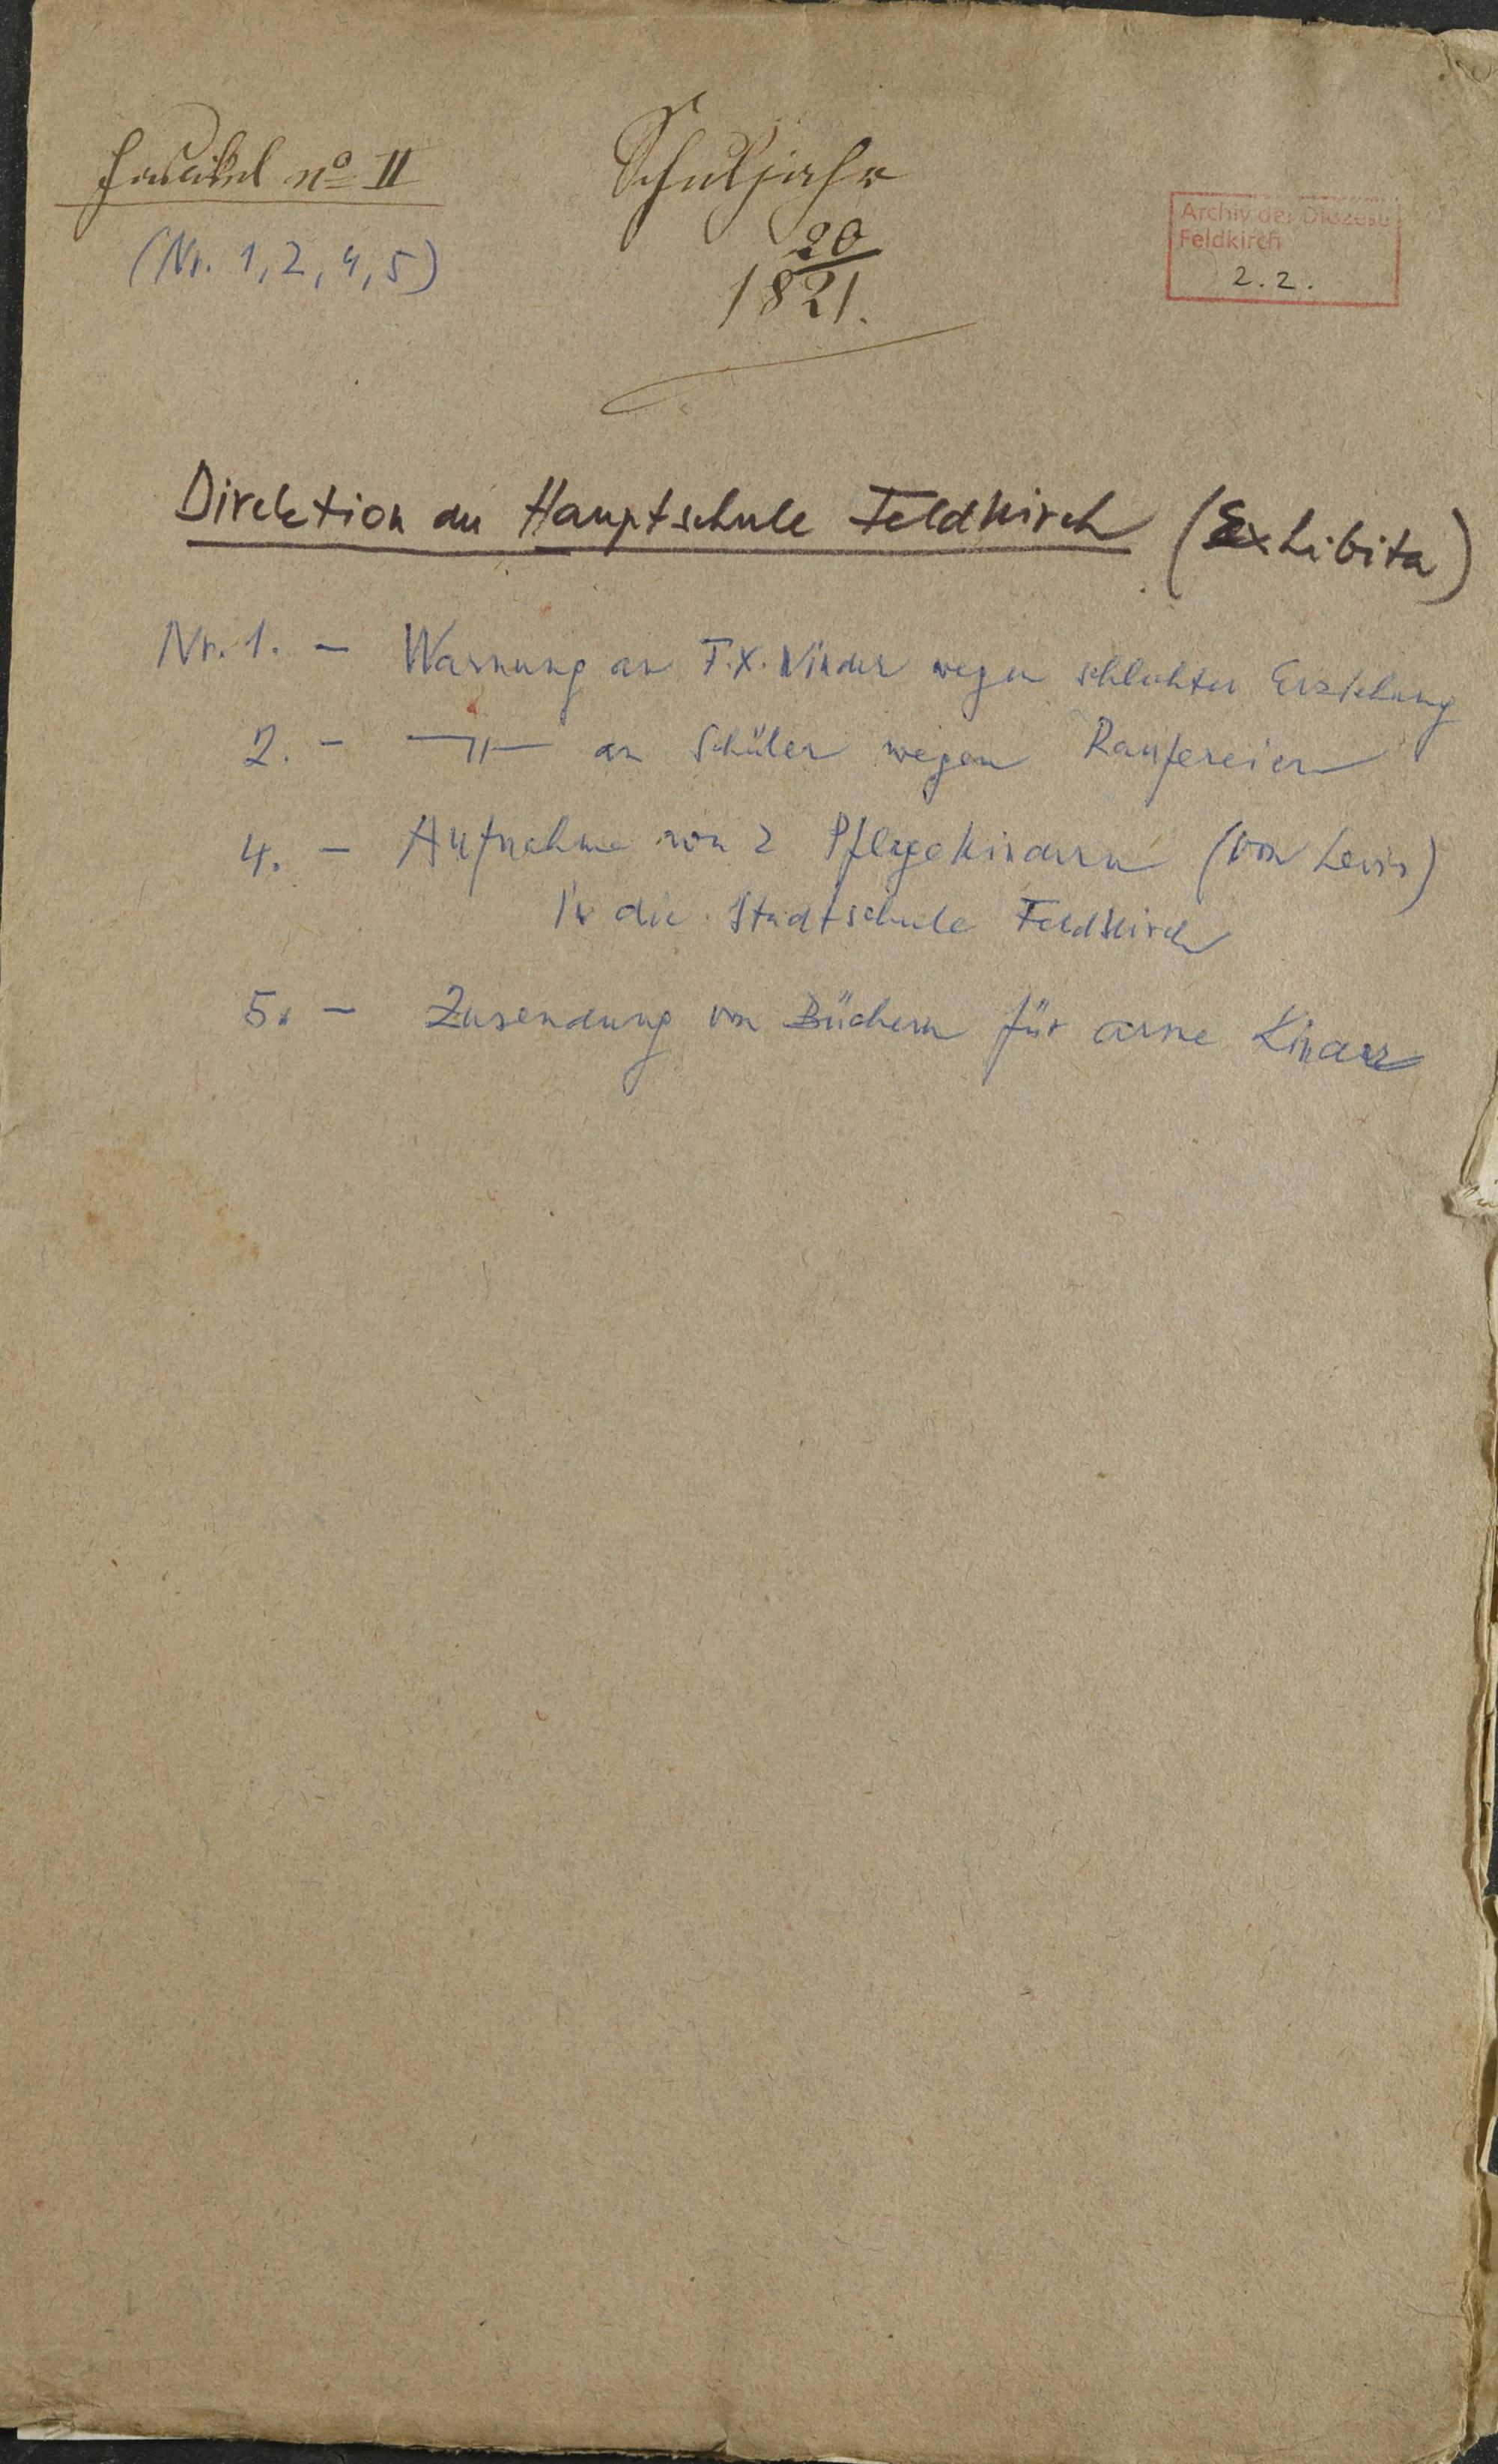 Fascikel nº II
(Nr. 1, 2, 4, 5)
Schuljahr
20
1821.
Archiv der Diözese
Feldkirch
2.2.
Direktion der Hauptschule Feldkirch (Exhibita)
Nr. 1. - Warnung an F.X. wegen schlechter Erziehung
2. - —"— an Schüler wegen Raufereien
4. - Aufnahme von 2 Pflegekindern (von Levis)
in die Stadtschule Feldkirch
5. - Zusendung von Büchern für arme Kinder